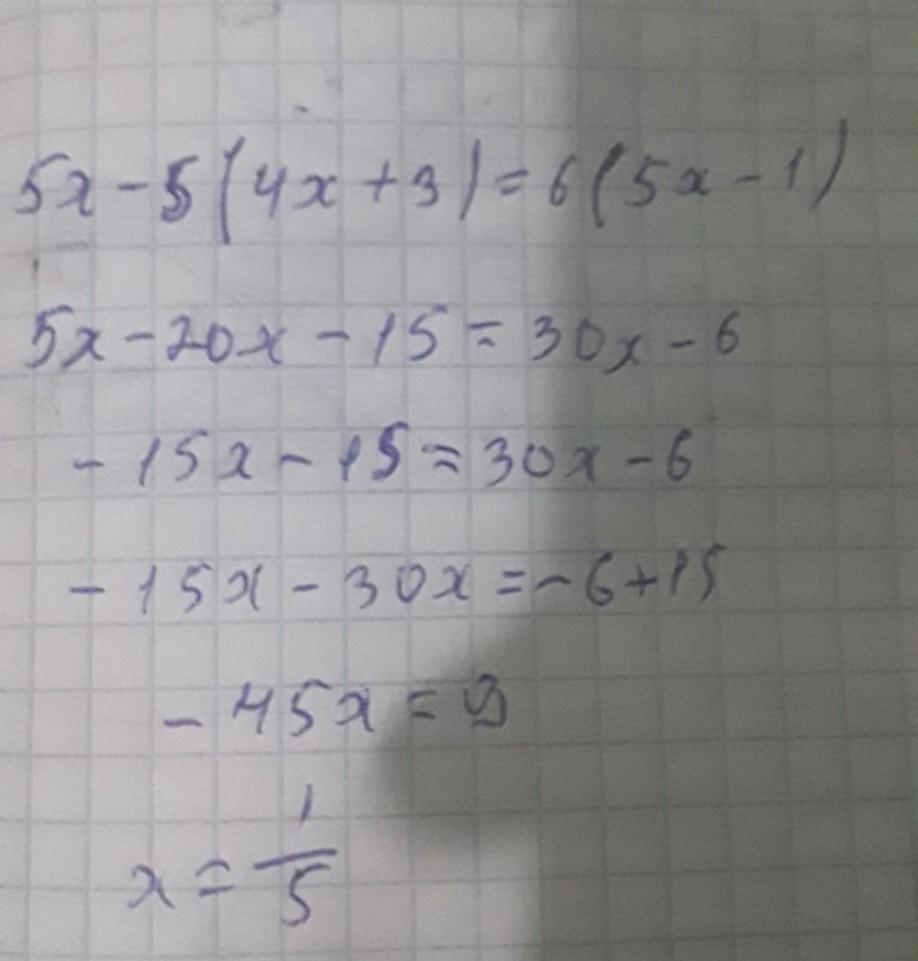 5x-5(4x+3)=6(5x-1)
5x-20x-15=30x-6
-15x-15=30x-6
-15x-30x=-6+15
-45x=9
x=1/5